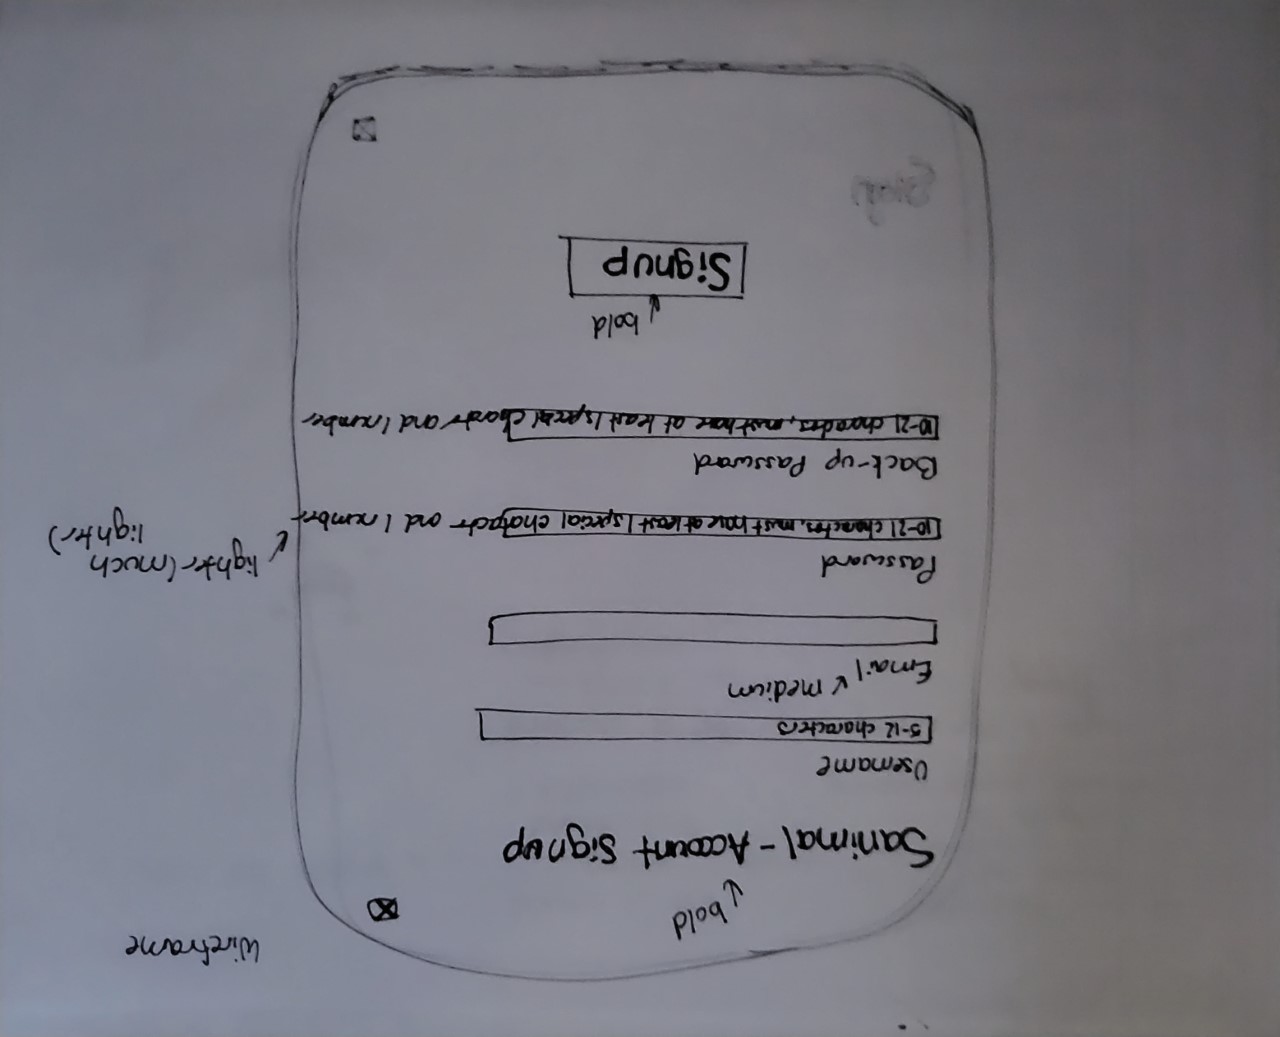 Wireframe
bold
Sanimal - Account Signup
Username
5-12 characters
Email
medium
Password
10-21 characters, must have at least 1 special character and 1 number
lighter (much
lighter)
Back-up Password
10-21 characters, must have at least 1 special character and 1 number
bold
Signup